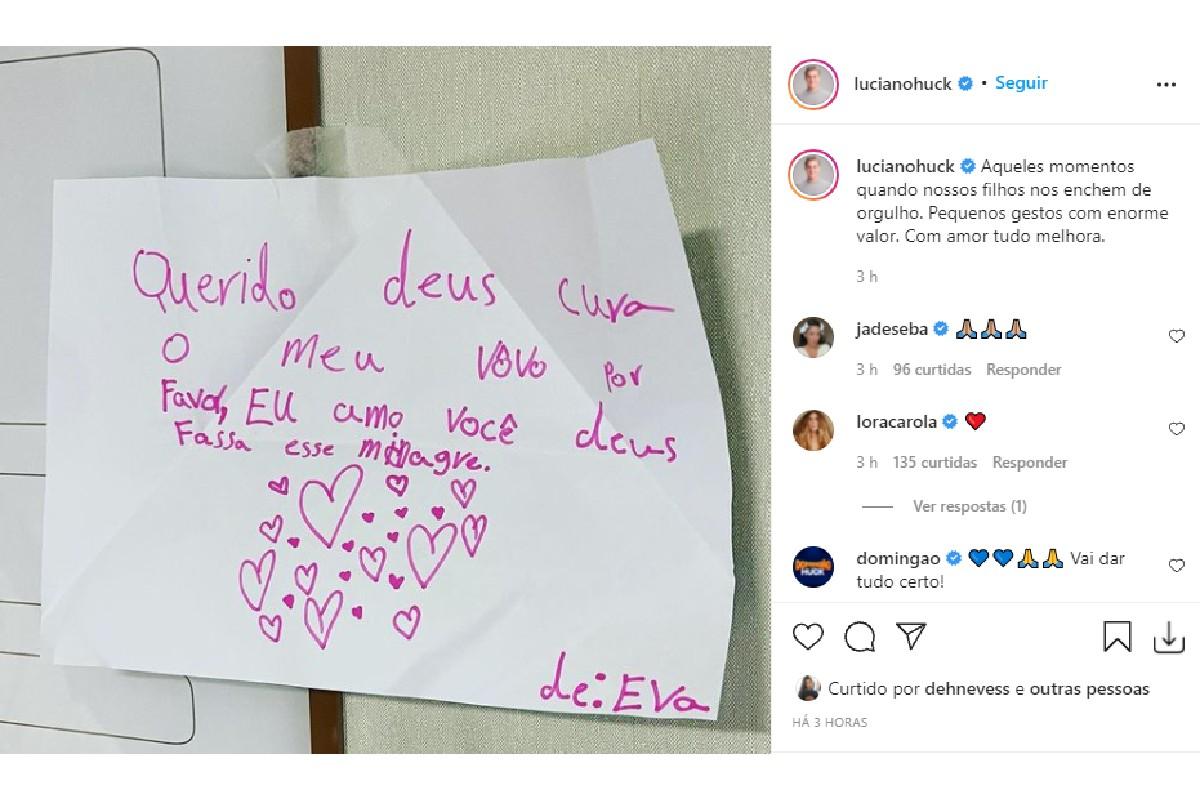 Querido deus cura
O meu vôvo por
Favor, EU amo você deus
Fassa esse milagre.
de: EVa
lucianohuck • Seguir
lucianohuck Aqueles momentos
quando nossos filhos nos enchem de
orgulho. Pequenos gestos com enorme
valor. Com amor tudo melhora.
3 h
jadeseba 🙏🏽🙏🏽🙏🏽
3 h 96 curtidas Responder
loracarola ❤️
3 h 135 curtidas Responder
Ver respostas (1)
domingao 💙💙🙏🙏 Vai dar
tudo certo!
Curtido por dehnevess e outras pessoas
HÁ 3 HORAS